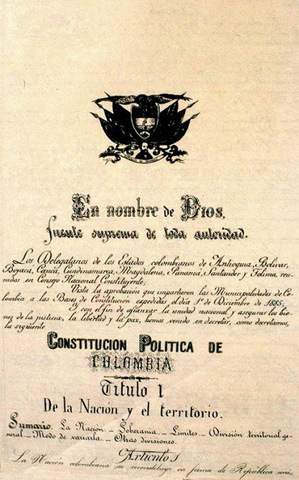 En nombre de Dios,
fuente suprema de toda autoridad.
Los Delegatarios de los Estados colombianos de Antioquia, Bolívar,
Boyacá, Cauca, Cundinamarca, Magdalena, Panamá, Santander y Tolima, reu-
nidos en Consejo Nacional Constituyente;
Vista la aprobación que impartieron las Municipalidades de Co-
lombia a las Bases de Constitución expedidas el día 1º de Diciembre de 1885;
Y con el fin de afianzar la unidad nacional y asegurar los bie-
nes de la justicia, la libertad y la paz, hemos venido en decretar, como decretamos,
la siguiente
CONSTITUCIÓN POLITICA DE
COLOMBIA
Título I
De la Nación y el territorio.
Sumario. La Nación – Soberanía – Límites – División territorial ge-
neral – Modo de variarla – Otras divisiones.
Artículo 1
La Nación colombiana se reconstituye en forma de República uni-